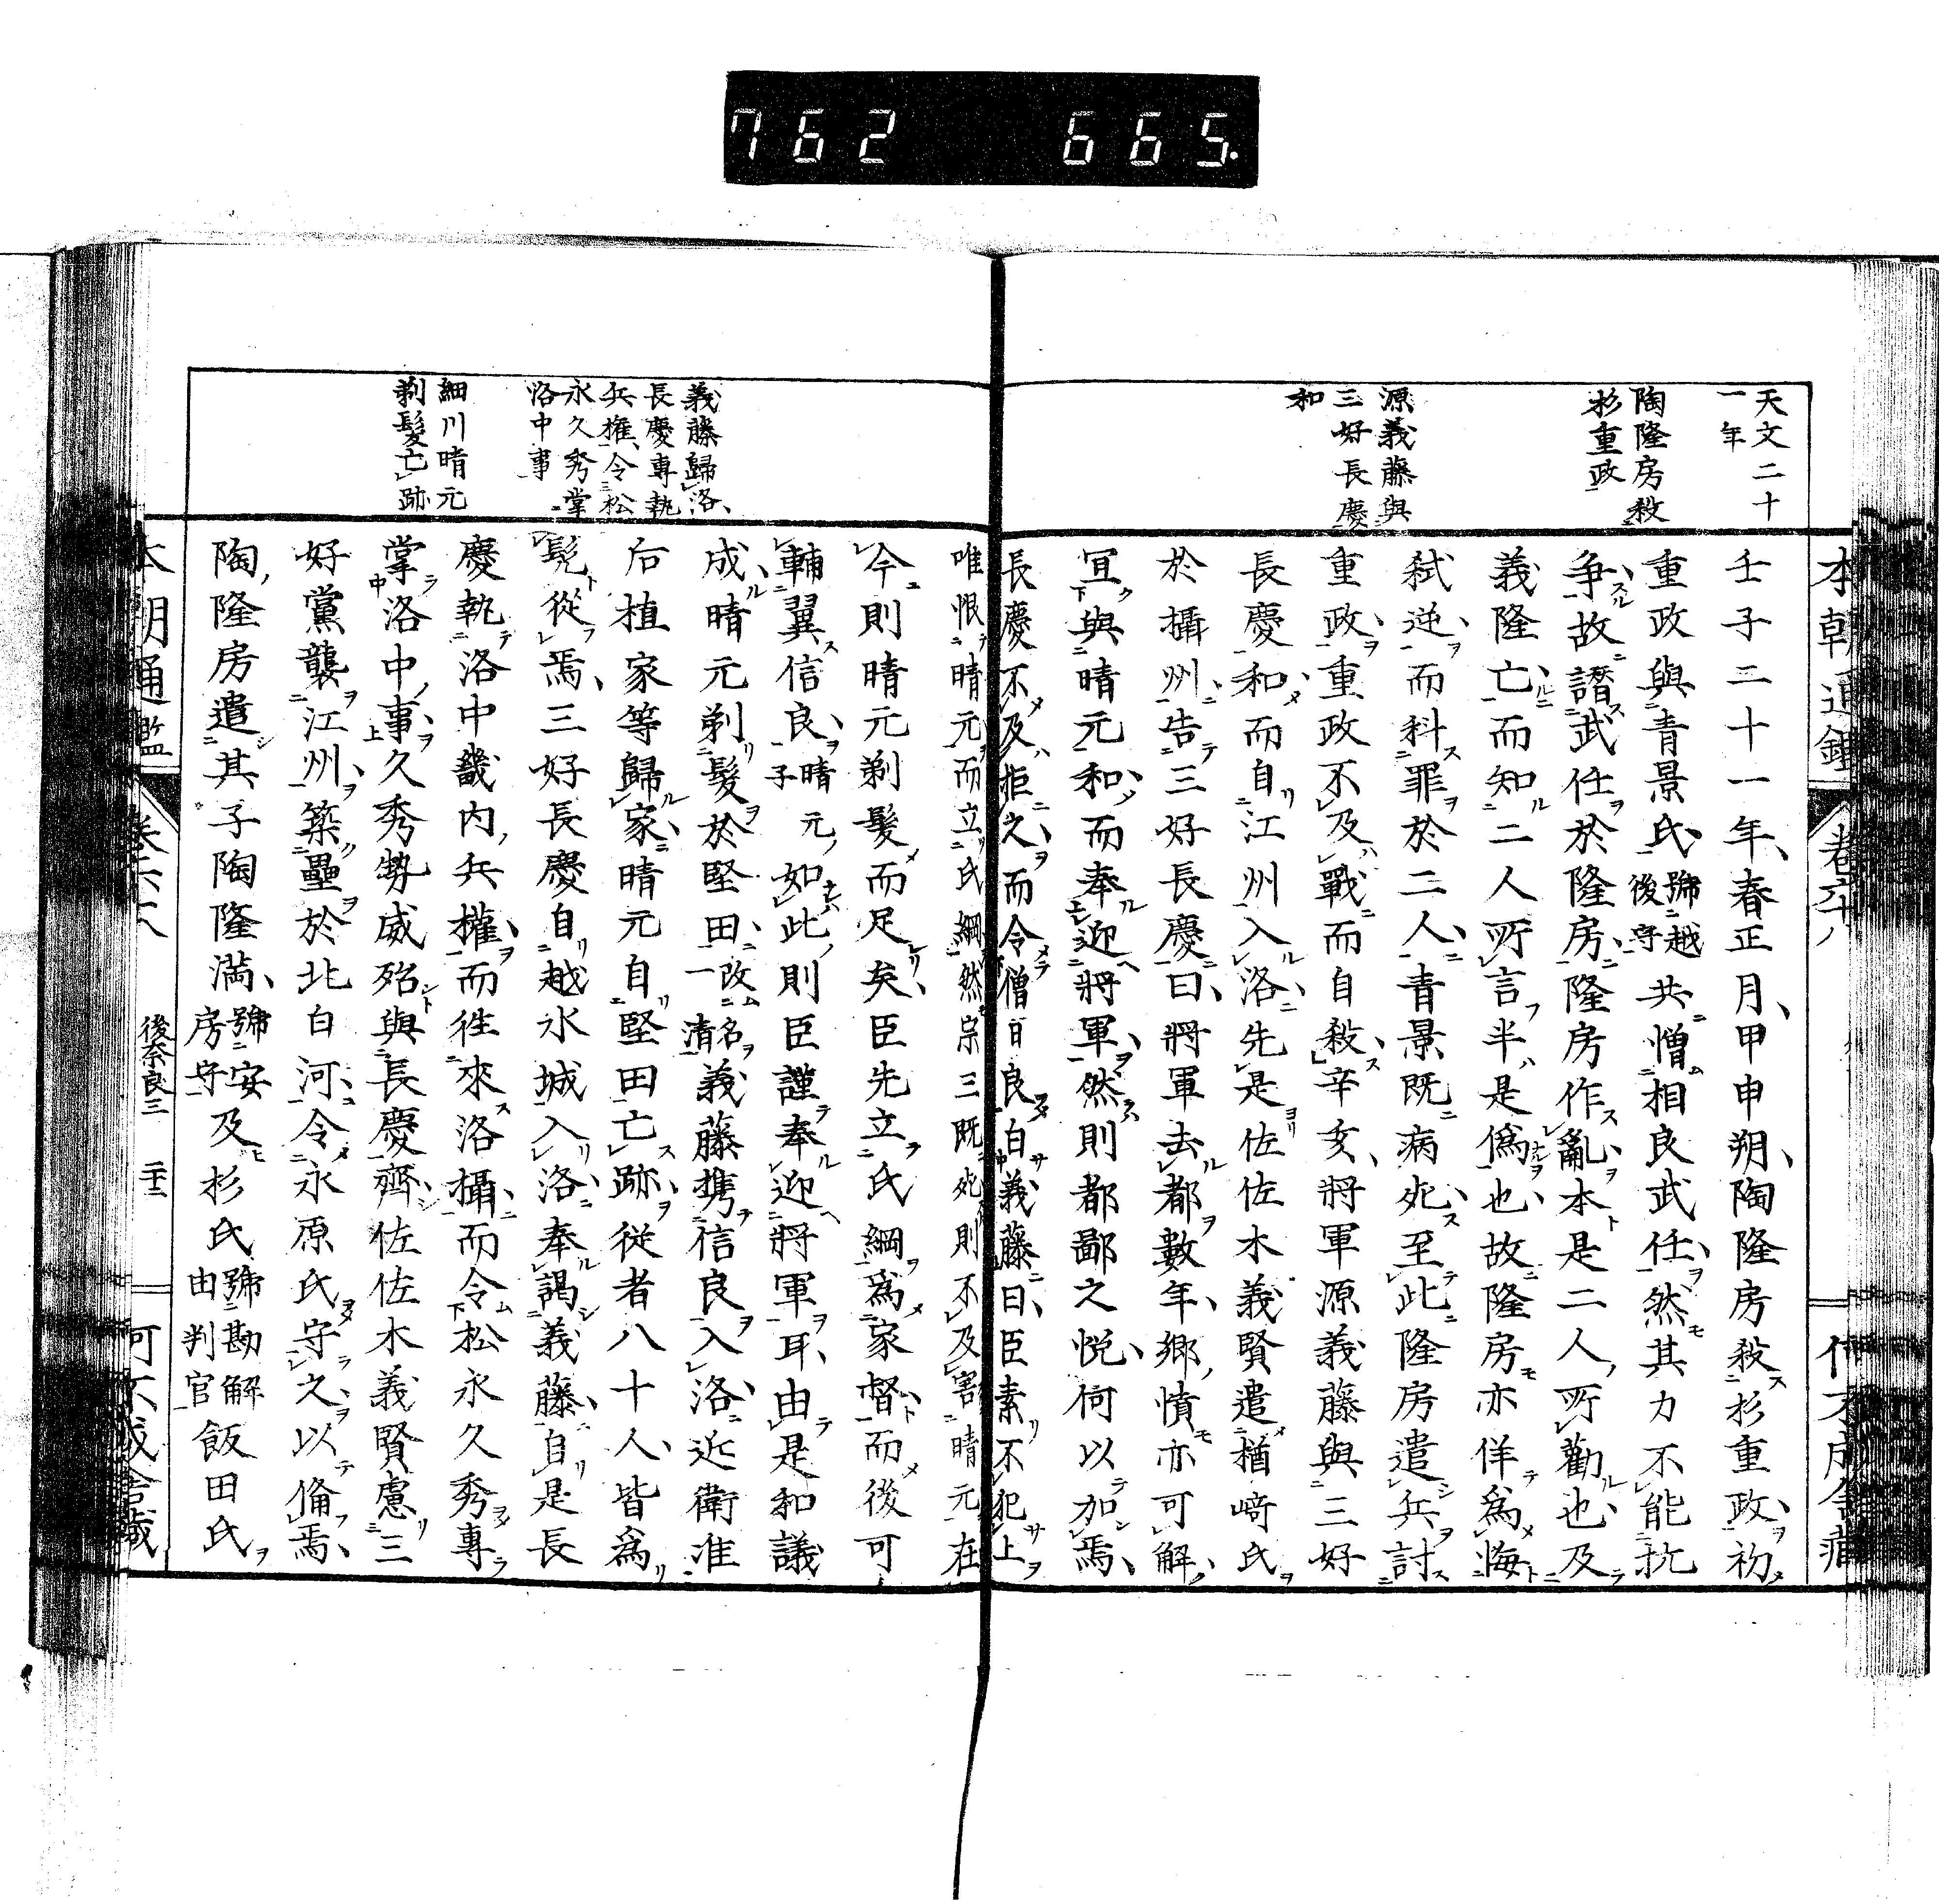 762 665.
天文二十
一年
陶隆房殺
杉重政
源義藤與
三好長慶
和
本朝通鑑 卷六十八
壬子二十一年、春正月、甲申朔、陶隆房殺杉重政、初
重政與青景氏、號越後守共憎相良武任、然其力不能抗
爭、故譖武任於隆房、隆房作亂、本是二人所勸也、及
義隆亡、而知二人所言半是僞也、故隆房亦佯爲悔
弑逆、而科罪於二人、青景既病死、至此隆房遣兵討
重政、重政不及戰而自殺、辛亥、將軍源義藤與三好
長慶和、而自江州入洛、先是佐佐木義賢遣楢﨑氏
於攝州、告三好長慶曰、將軍去都數年、鄉憤亦可解、
宜與晴元和、而奉迎將軍、然則都鄙之悅、何以加焉、
長慶不及拒之、而令僧日良白義藤曰、臣素不犯上、
義藤歸洛、
長慶專執
兵權、令松
永久秀掌
洛中事
細川晴元
剃髮亡跡
唯恨晴元而立氏綱、然宗三既死、則不及害晴元、在
今則晴元剃髮而足矣、臣先立氏綱爲家督、而後可
輔翼信良、晴元子如此、則臣謹奉迎將軍耳、由是和議
成、晴元剃髮於堅田、改名一清義藤携信良入洛、近衛准
后植家等歸家、晴元自堅田亡跡、從者八十人、皆爲
髡從焉、三好長慶自越水城入洛、奉謁義藤、自是長
慶執洛中畿内兵權、而往來洛攝、而令松永久秀專
掌洛中事、久秀勢威殆與長慶齊、佐佐木義賢慮三
好黨襲江州、築壘於北白河、令永原氏守之、以備焉、
陶隆房遣其子陶隆滿、號安房守及杉氏號勘解由判官飯田氏
本朝通鑑 卷六十八 後奈良三 二十二